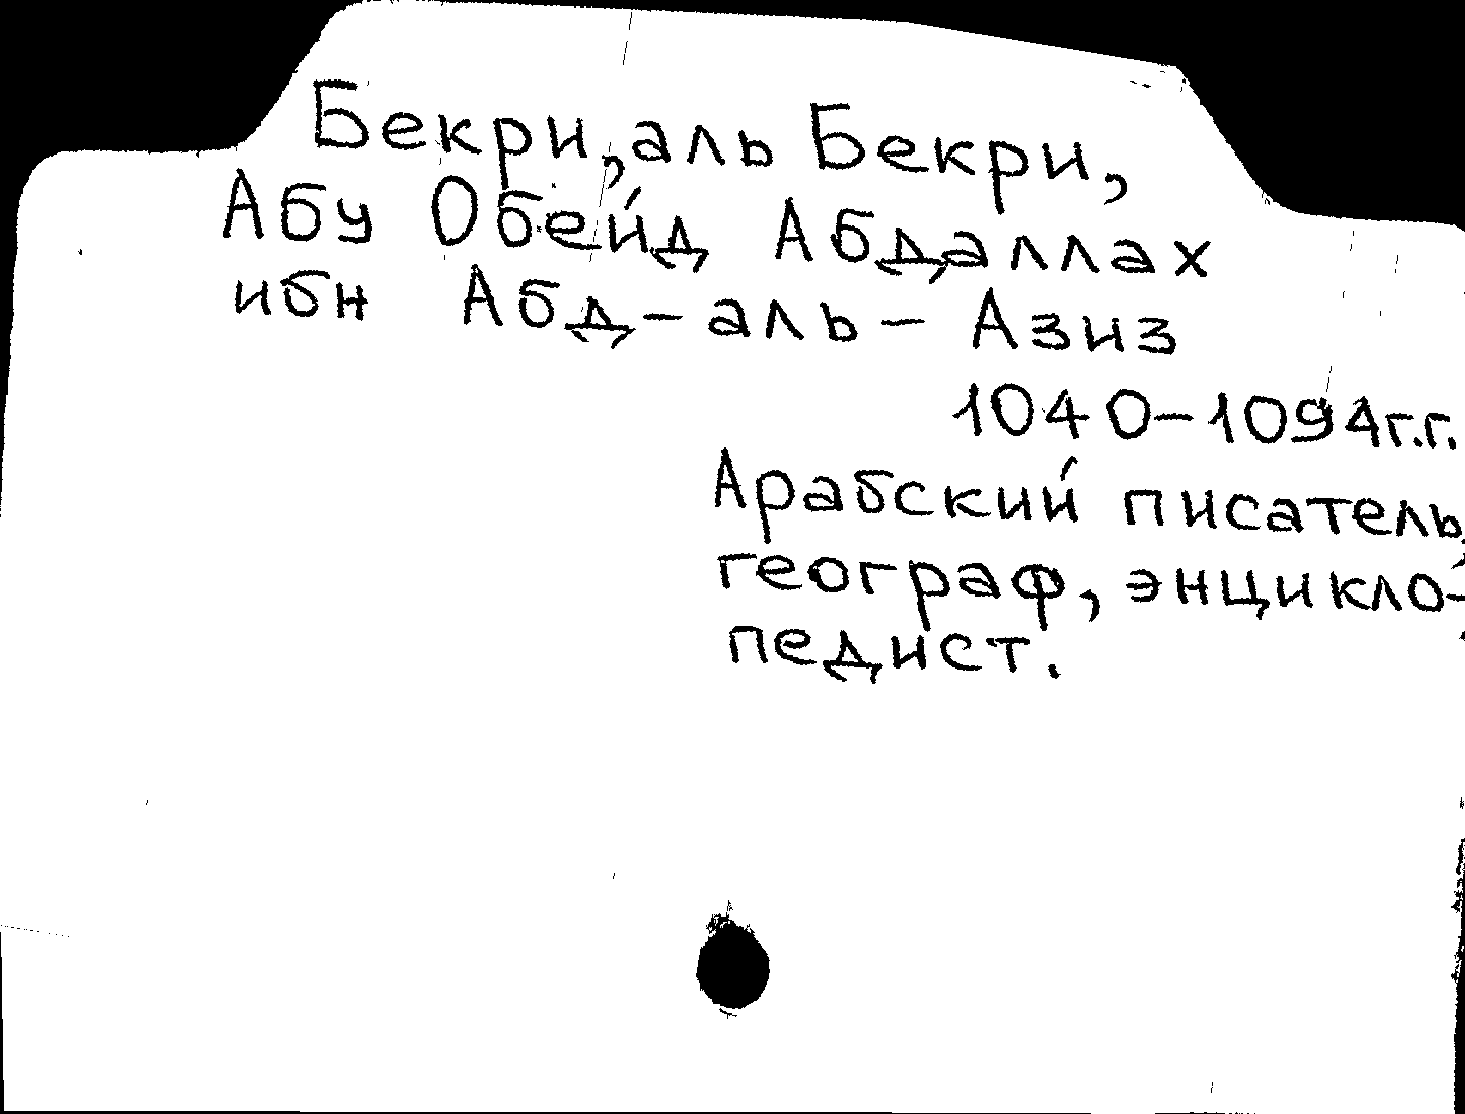 Бекри, аль Бекри,
Абу Обейд Абдаллах
ибн Абд-аль-Азиз
1040-1094г.г.
Арабский писатель,
географ, энцикло-
педист.